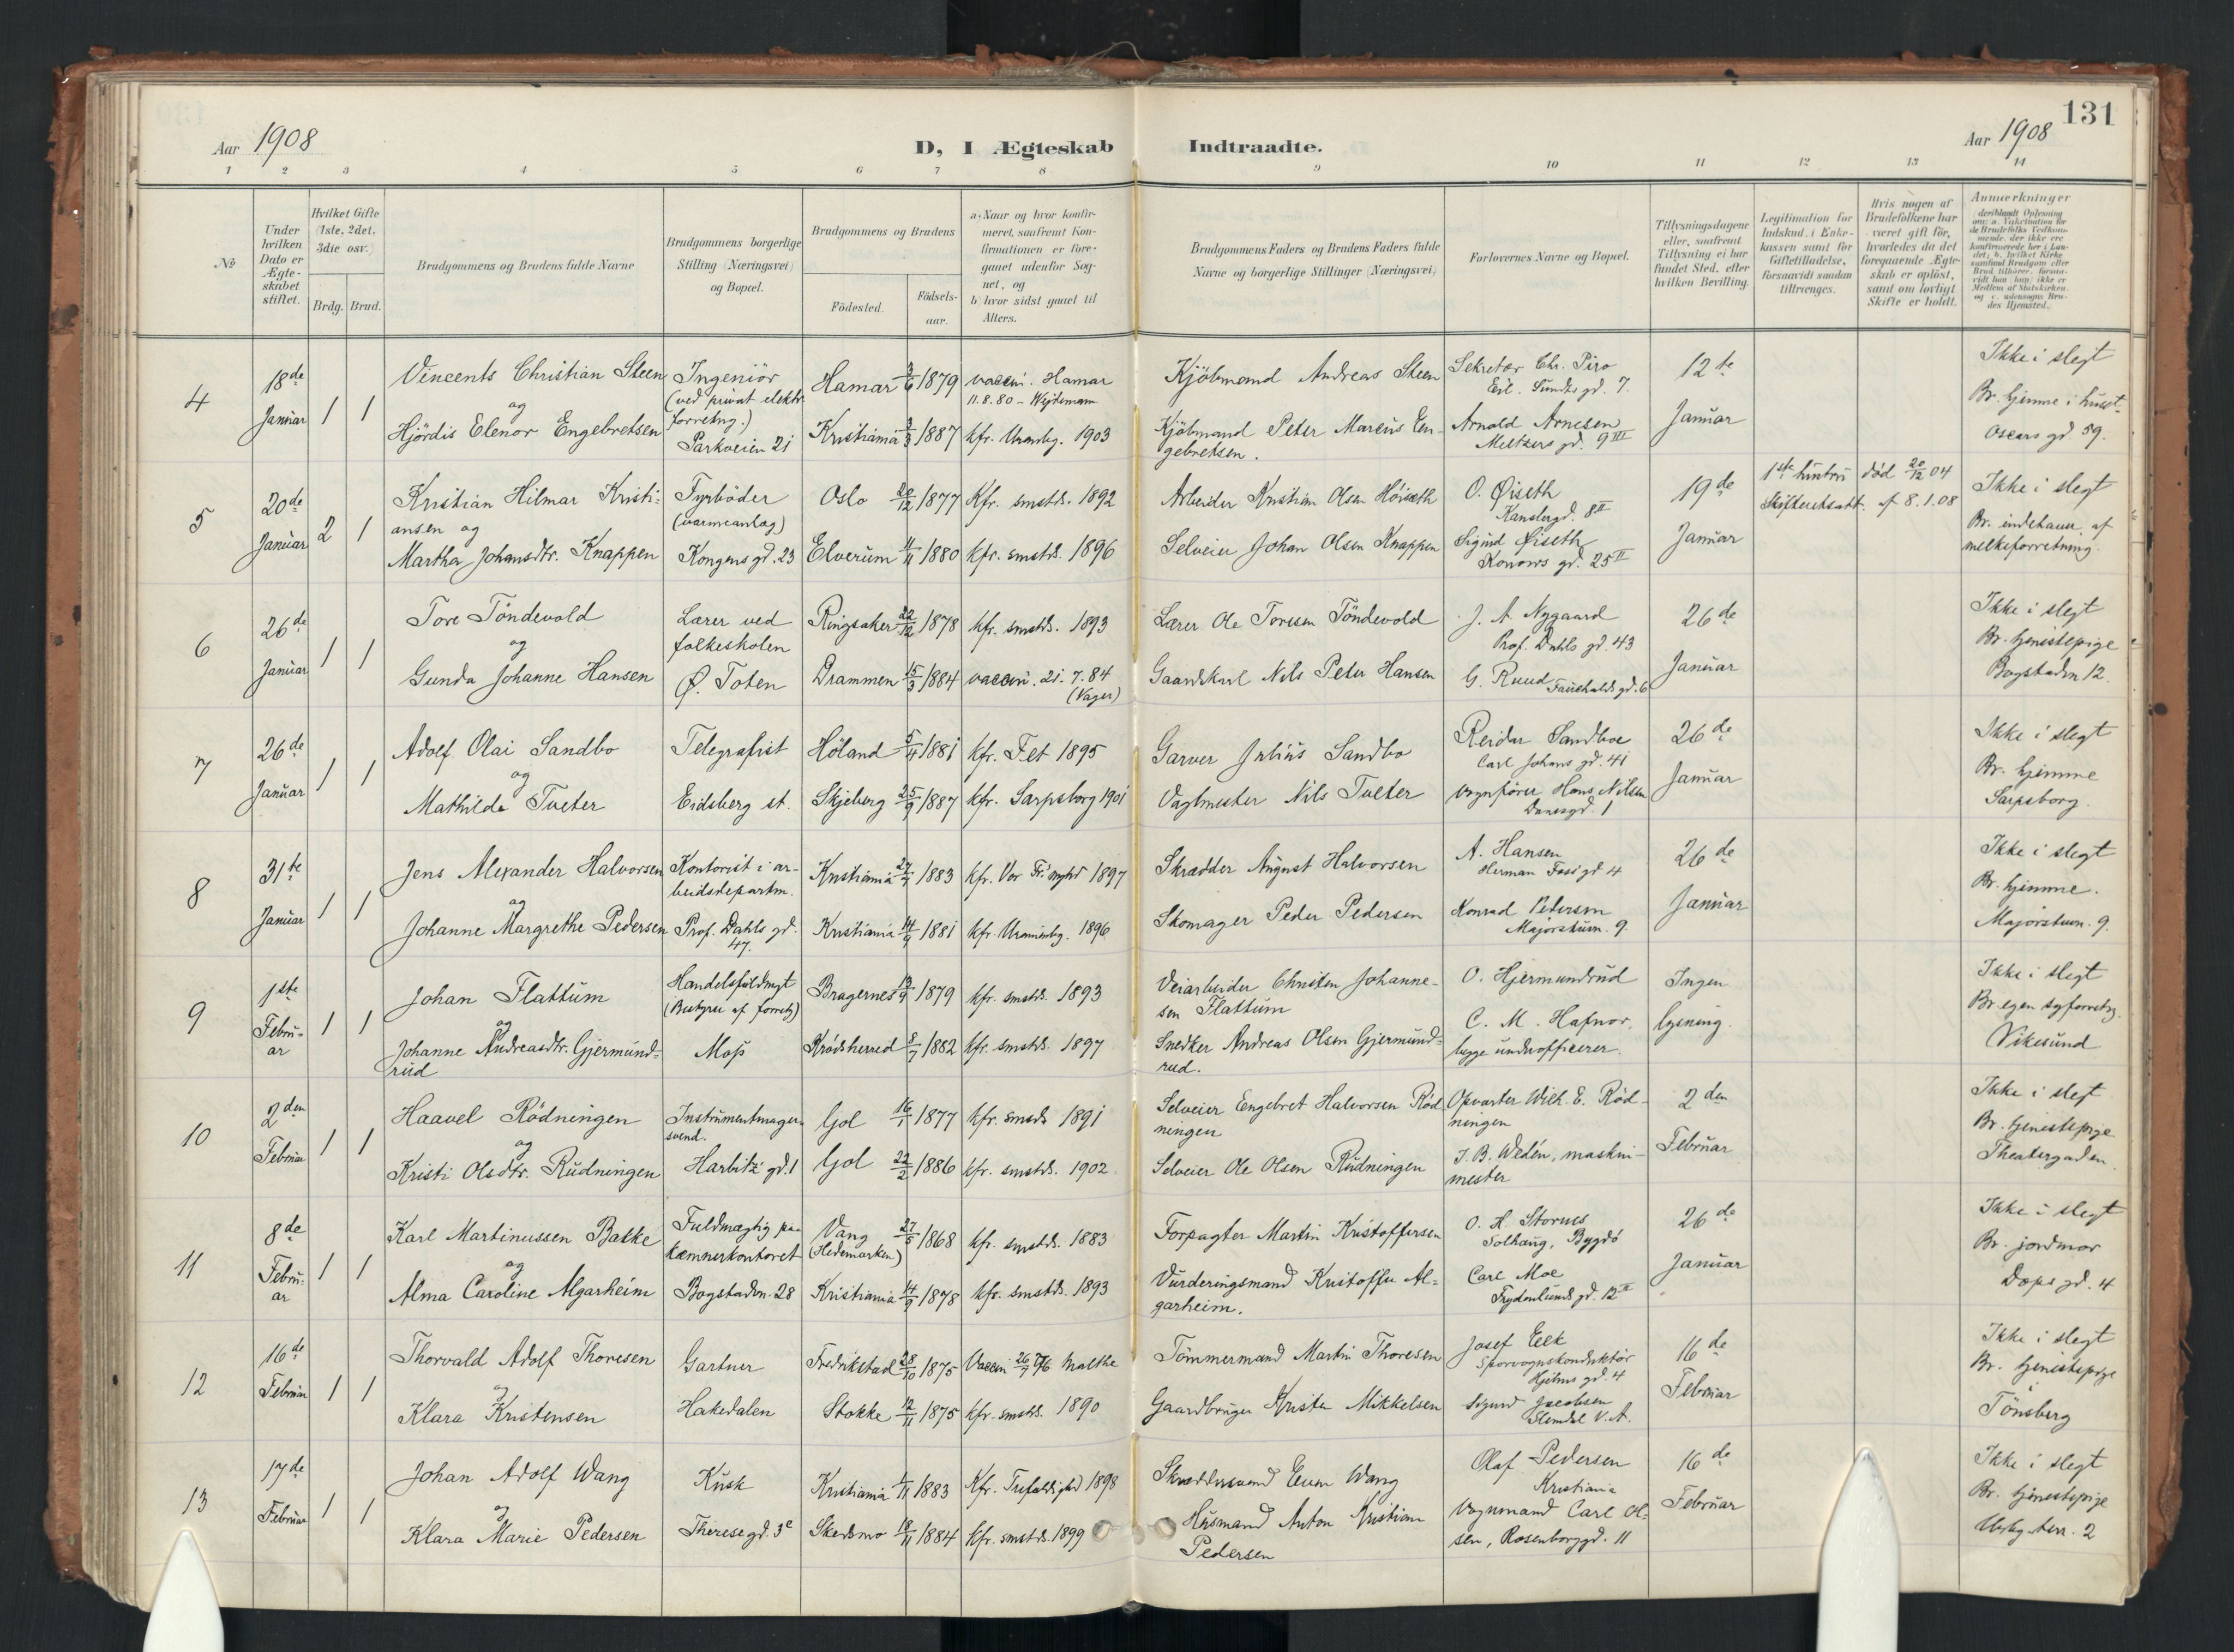 131
Aar 1908
D, I Ægteskab Indtraadte.
Aar 1908
1 2 3 4 5 6 7 8 9 10 11 12 13 14
№
Under hvilken Dato er Ægteskabet stiftet.
Hvilket Gifte (1ste, 2det, 3die osv.)
Brdg. Brud.
Brudgommens og Brudens fulde Navne
Brudgommens borgerlige Stilling (Næringsvei) og Bopæl.
Brudgommens og Brudens
Födested.
Födselsaar.
a. Naar og hvor konfirmeret, saafremt Konfirmationen er foregaaet udenfor Sognet, og
b) hvor sidst gaaet til Alters.
Brudgommens Faders og Brudens Faders fulde Navne og borgerlige Stillinger (Næringsvei)
Forlovernes Navne og Bopæl.
Tillysningsdagene eller, saafremt Tillysning ei har fundet Sted, efter hvilken Bevilling.
Legitimation for Indskud i Enkekassen samt for Giftetilladelse, forsaavidt saadan tiltrænges.
Hvis nogen af Brudefolkene har været gift för, hvorledes da det foregaaende Ægteskab er oplöst, samt om lovligt Skifte er holdt.
Anmerkninger
4
18de Januar
1 1
Vincents Christian Steen
og
Hjördis Elenor Engebretsen
Ingeniör
(ved privat elektr. forretng.)
Parkveien 21
Hamar 3/6 1879 vaccin. Hamar
11.8.80 -
Kristiania 3/3 1887 kfr. Uranbg. 1903
Kjöbmand Andreas Steen
Kjöbmand Peter Marcus Engebretsen.
Sekretær Chr. Piro
Eil. Sundts gd. 7.
Arnold Arnesen
Meltzers gd. 9 III
12te Januar
Ikke i slegt
Br. hjemme i huset
Oscars gd 59.
5
20de Januar
2 1
Kristian Hilmar Kristiansen og
Martha Johansdtr. Knappen
Fyrböder
(varmeanlæg)
Kongens gd. 23
Oslo 20/12 1877 Kfr. smstds. 1892
Elverum 4/11 1880 kfr. smstds. 1896
Arbeider Kristian Olsen Höiseth
Selveier Johan Olsen Knappen
O. Øiseth
Kanslergd. 8 II
Sigurd Øiseth
Konows gd. 25 II
19de Januar
1ste hustru död 20/12 04
Skifteretsatt. af 8.1.08
Ikke i slegt
Br. indehaver af
melkeforretning.
6
26de Januar
1 1
Tore Töndevold
og
Gunda Johanne Hansen
Lærer ved
folkeskolen
Ø. Toten
Ringsaker 22/12 1878 kfr. smstds. 1893
Drammen 15/3 1884 vaccin. 21.7.84
(Vager)
Lærer Ole Toresen Töndevold
Gaardskarl Nils Peter Hansen
J. A. Nygaard
Prof. Dahls gd. 43
G. Ruud Fauchalds gd. 6
26de Januar
Ikke i slegt
Br. tjenestepige
Bogstadvn 12.
7
26de Januar
1 1
Adolf Olai Sandbo
og
Mathilde Tveter
Telegrafist
Eidsberg st.
Höland 5/4 1881 kfr. Fet 1895
Skjeberg 25/9 1887 kfr. Sarpsborg 1901
Garver Julius Sandbo
Vagtmester Nils Tveter
Reidar Sandboe
Carl Johans gd. 41
Vognförer Hans Nilsen
1
26de Januar
Ikke i slegt
Br. hjemme
Sarpsborg.
8
31te Januar
1 1
Jens Alexander Halvorsen
og
Johanne Margrethe Pedersen
Kontorist i arbeidsdepartm.
Prof. Dahls gd.
47.
Kristiania 27/7 1883 kfr. Vor Fr. 1897
Kristiania 14/9 1881 kfr. Uranienbg. 1896
Skrædder August Halvorsen
Skomager Peder Pedersen
A. Hansen
Herman Foss gd 4
Konrad Petersen
Majorstuvn. 9.
26de Januar
Ikke i slegt
Br. hjemme.
Majorstuvn. 9.
9
1ste Februar
1 1
Johan Flattum
og
Johanne Andreasdtr. Gjermundrud
Handelsfuldmgt
(Bestyrer af forretg)
Moss
Bragernes 13/9 1879 kfr. smstds. 1893
Krödsherred 8/7 1882 kfr. smstds. 1897
Veiarbeider Christen Johannesen Flattum
Snedker Andreas Olsen Gjermundrud.
O. Hjermundrud
C. M. Hafnor,
begge underofficerer.
Ingen
lysning.
Ikke i slegt
Br. egen syforretng.
Vikesund
10
2den Februar
1 1
Haavel Rödningen
og
Kristi Olsdtr. Rudningen
Instrumentmagersvend.
Harbitz' gd. 1
Gol 16/1 1877 kfr. smsds 1891
Gol 22/2 1886 kfr. smstds. 1902.
Selveier Engebret Halvorsen Rödningen
Selveier Ole Olsen Rudningen
Opvarter Wilh. E. Rödningen
J. B. Wedén, maskinmester
2den Februar
Ikke i slegt
Br. tjenestepige
Theatergaden.
11
8de Februar
1 1
Karl Martinussen Bakke
og
Alma Caroline Algarheim
Fuldmægtig paa
kæmnerkontoret
Bogstadvn. 28
Vang (Hedemarken) 27/5 1868 kfr. smstds. 1883
Kristiania 14/9 1878 kfr. smstds. 1893
Forpagter Martin Kristoffersen
Vurderingsmand Kristoffer Algarheim.
O. H. Stornes
Solhaug, Bygdö
Carl Moe
Frydenlunds gd. 12 II
26de Januar
Ikke i slegt
Br. jordmor
Dops gd. 4
12
16de Februar
1 1
Thorvald Adolf Thoresen
og
Klara Kristensen
Gartner
Hakedalen
Fredrikstad 28/10 1875 Vaccin 26/7 76 Malthe
Stokke 12/11 1875 kfr. smstds. 1890
Tömmermand Martin Thoresen
Gaardbruger Krister Mikkelsen
Josef Eek
Sporvognskonduktör
Hjelms gd. 4
Sigurd Jacobsen
Slemdal V. A.
16de Februar
Ikke i slegt
Br. tjenestepige
Tönsberg
13
17de Februar
1 1
Johan Adolf Wang
og
Klara Marie Pedersen
Kusk
Therese gd. 3e
Kristiania 1/11 1883 Kfr. Trefoldighed 1898
Skedsmo 18/11 1884 kfr. smstds. 1899
Skræddersvend Even Wang
Husmand Anton Kristian
Pedersen
Olaf Pedersen
Kristiania
Vognmand Carl Olsen, Rosenborggd. 11
16de Februar
Ikke i slegt
Br. tjenestepige